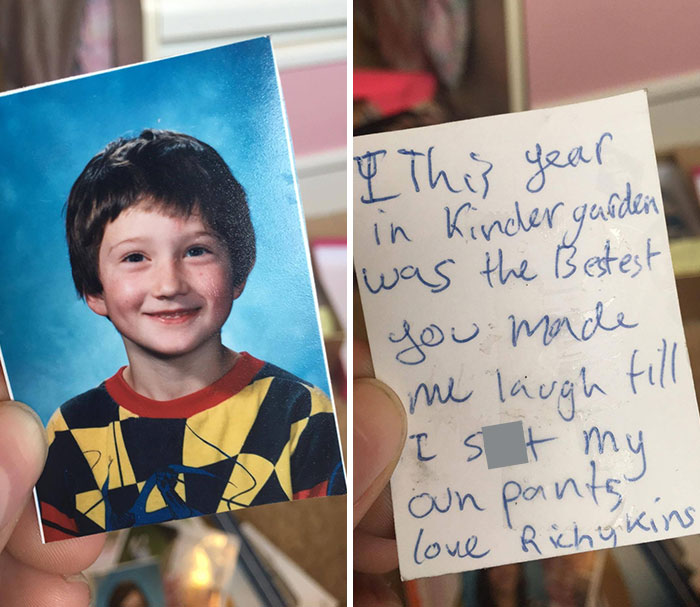 I This year
in Kinder garden
was the Bestest
you made
me laugh till
I s■t my
own pants
love Richykins